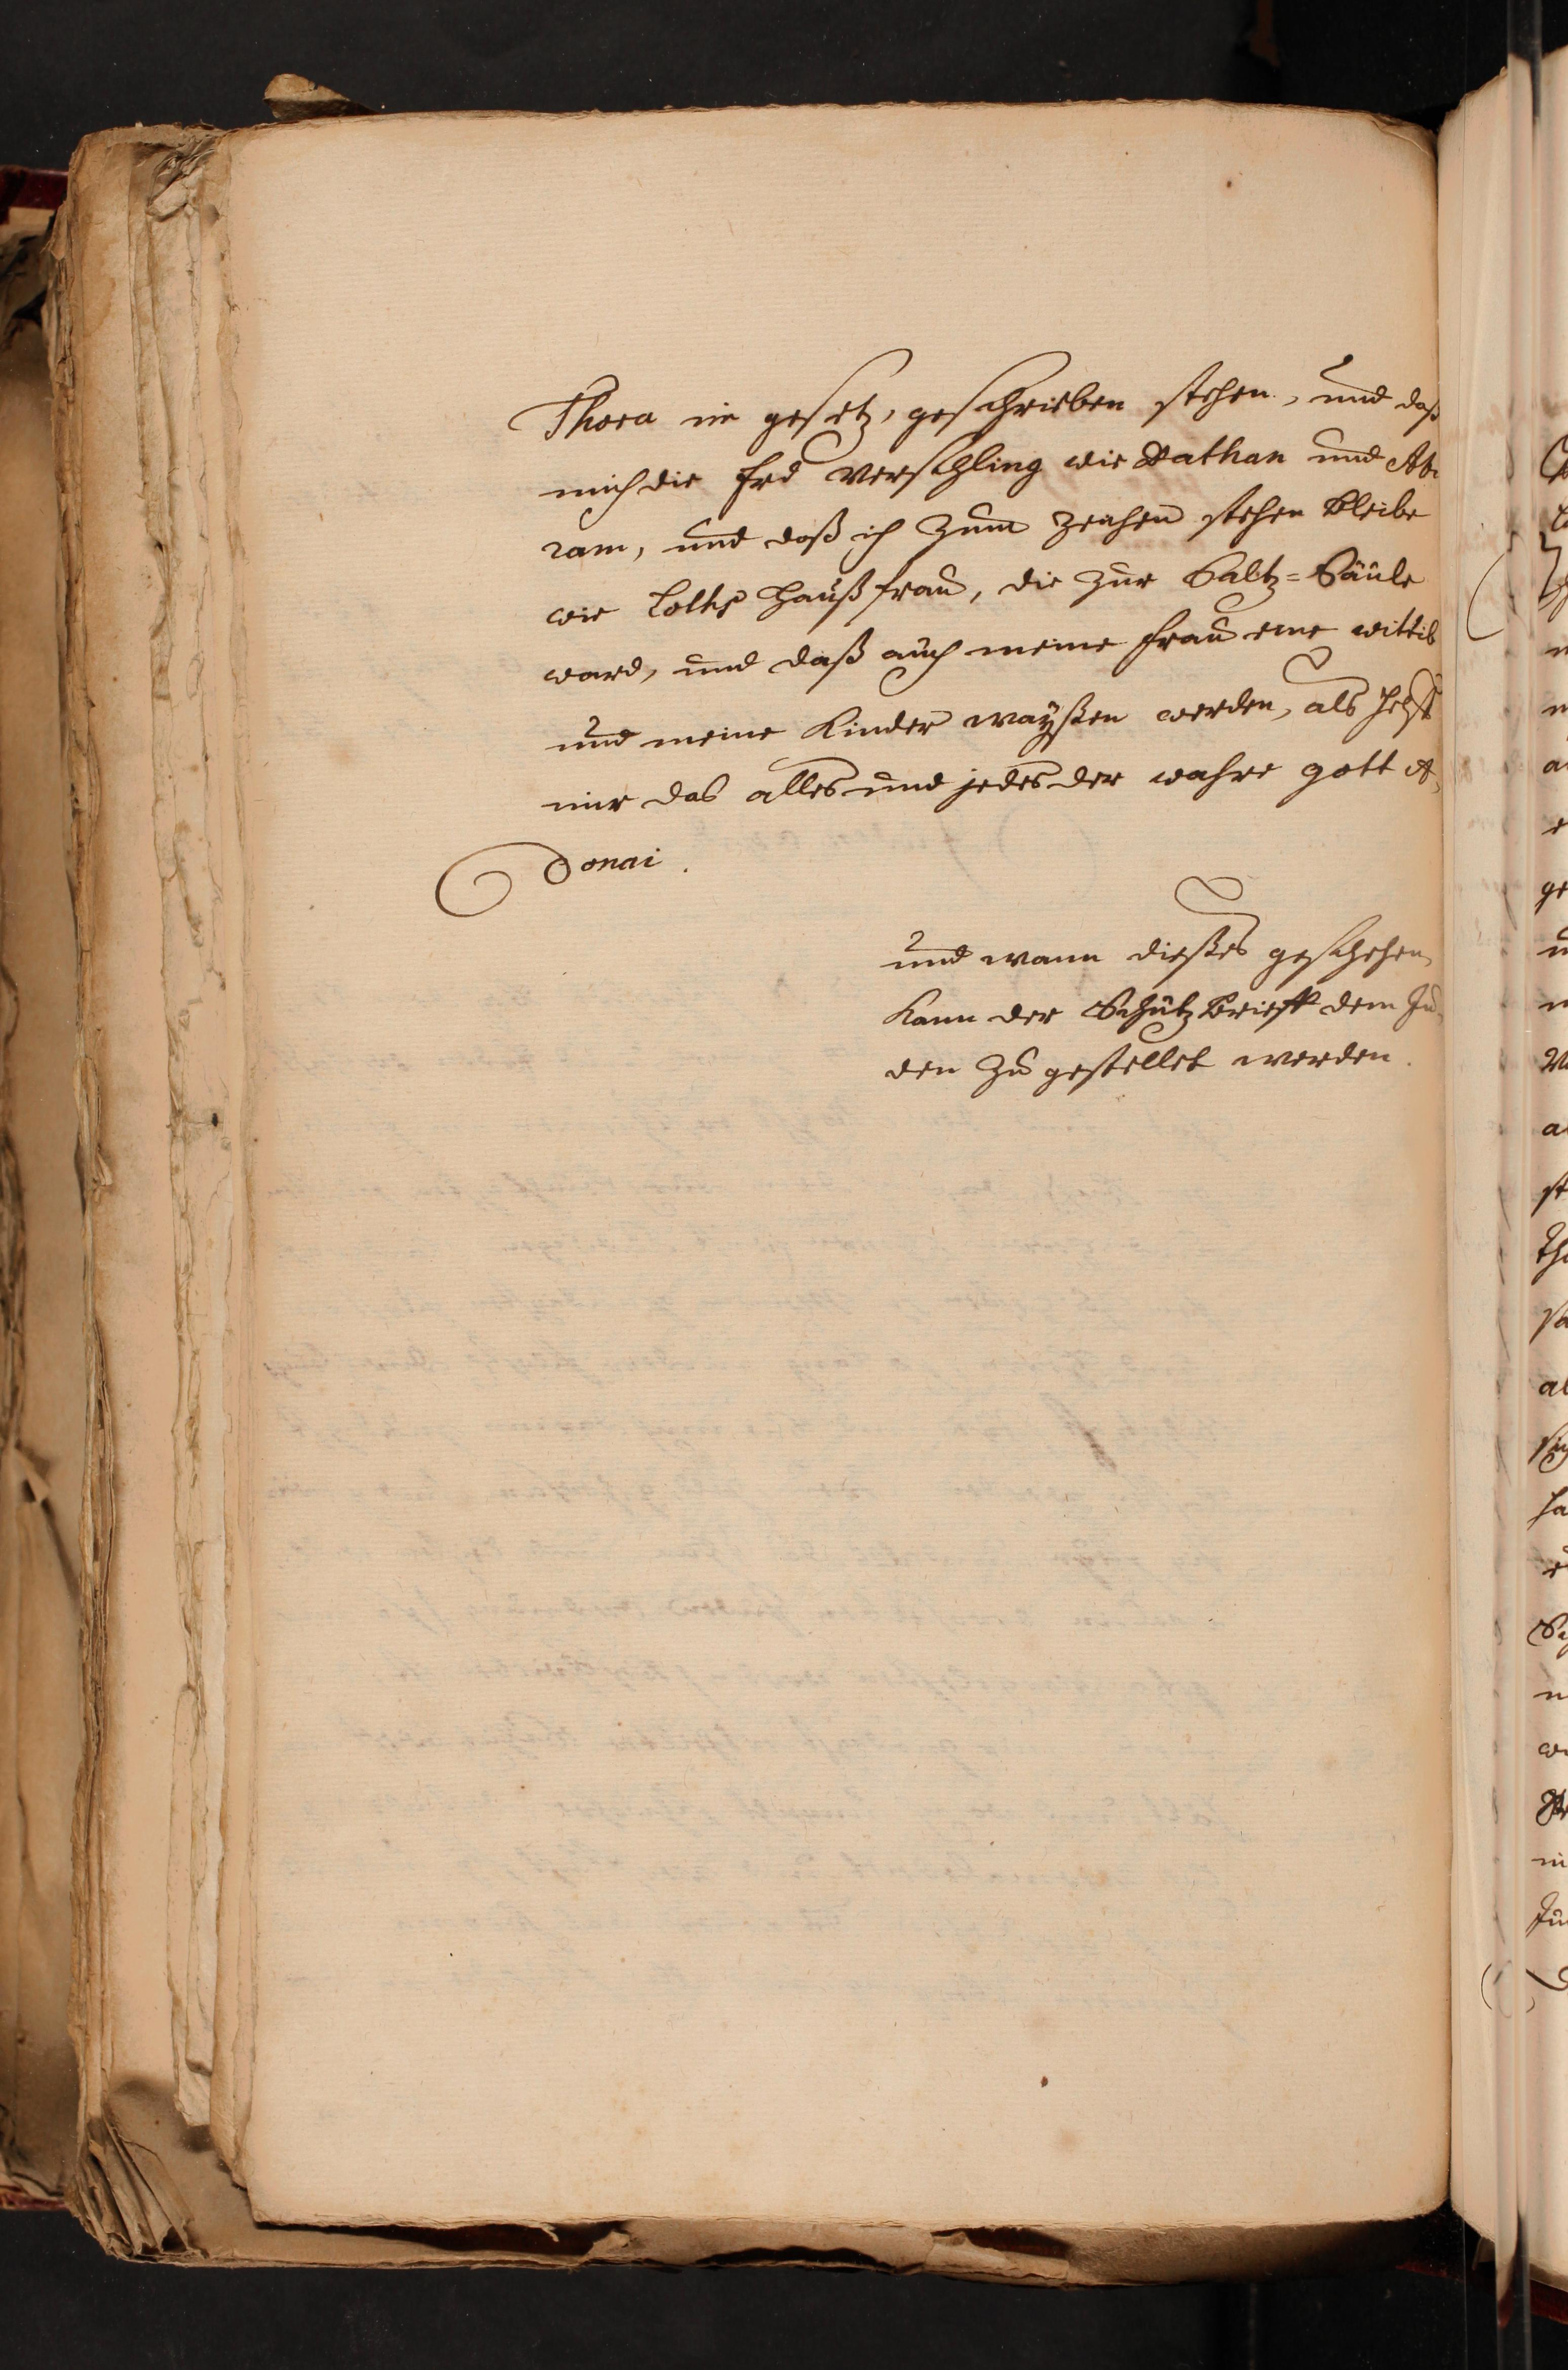 Thora im gesetz, geschrieben stehen, und daß
mich die Erd verschling wie Dathan und Abi
ram, und daß ich zum zeichen stehen bleibe
wie Loths Haußfrau, die zur Saltz=Säule
ward, und daß auch meine Frau eine wittib
und meine Kinder wayßen werden, als helff
mir das alles und jedes der wahre gott A,
donai.
und wann dießes geschehen,
kann der Schutzbrieff dem Ju,
den zugestellet werden.